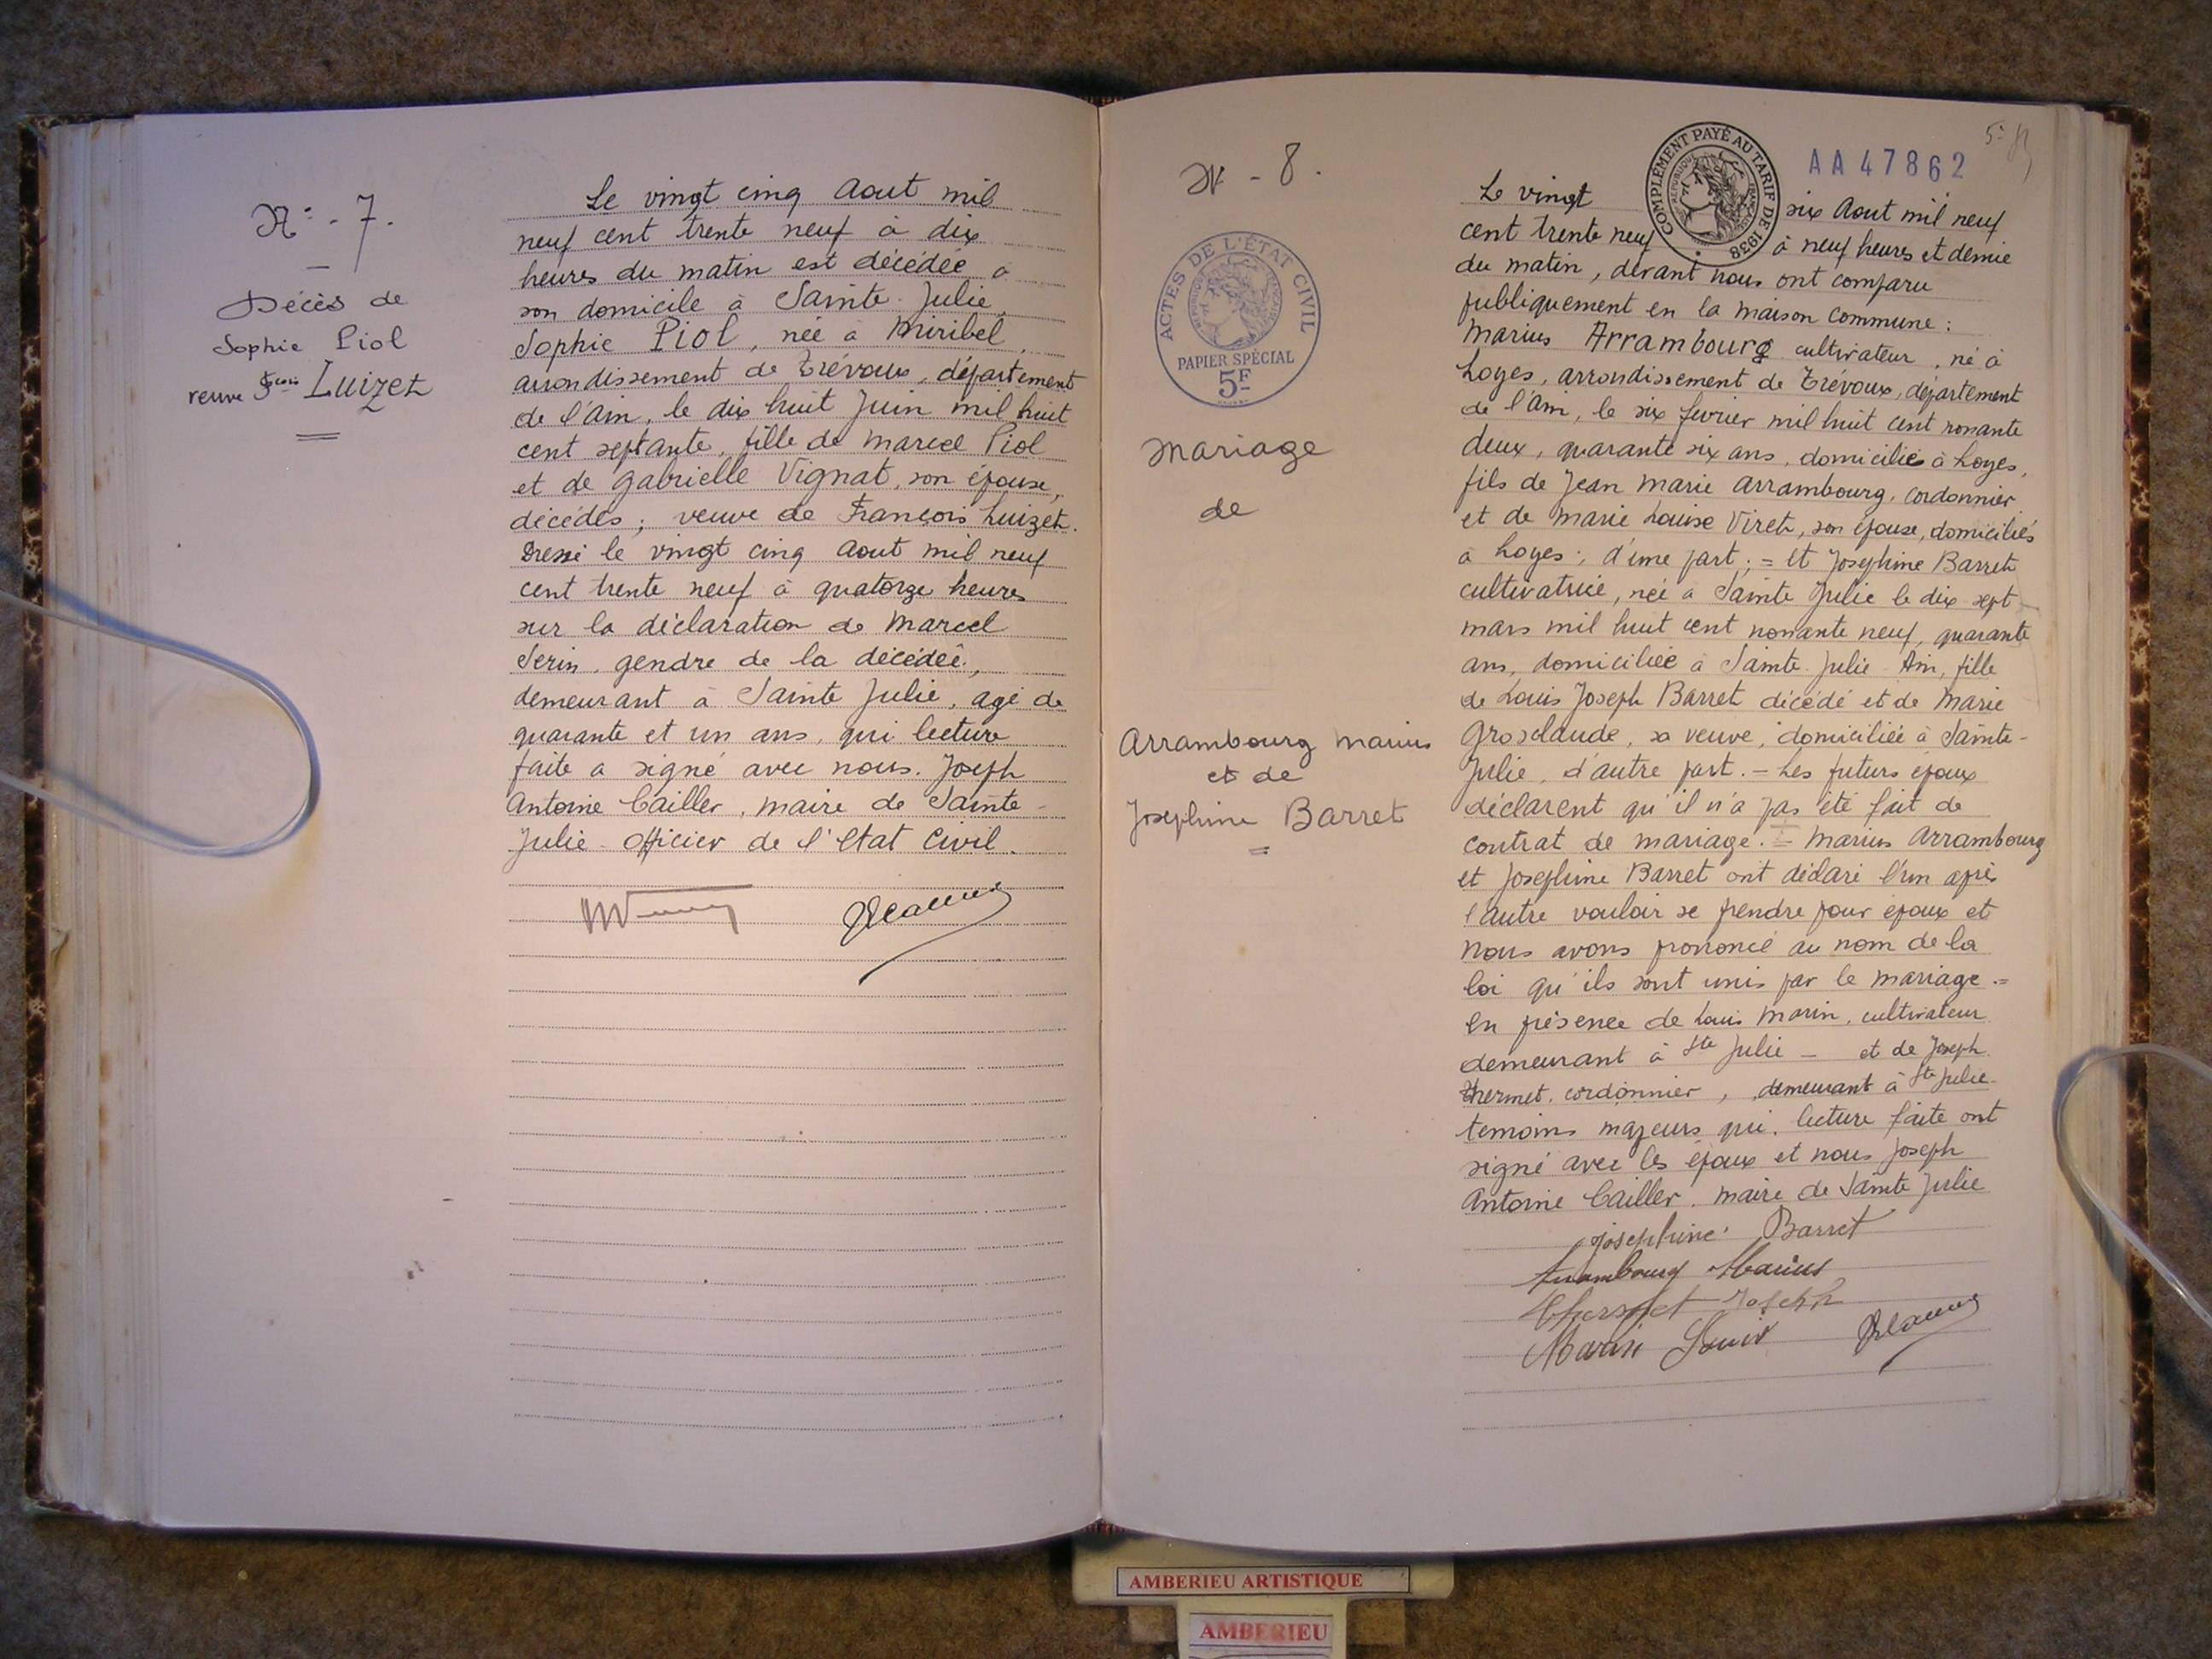 N° - 7.
Décès de
Sophie Piol
veuve Fçois Luizet
Le vingt cinq Aout mil
neuf cent trente neuf à dix
heures du matin est décédée à
son domicile à Sainte-Julie,
Sophie Piol, née a Miribel,
arrondissement de Trévoux, département
de l'Ain, le dix huit Juin mil huit
cent septante, fille de Marcel Piol
et de Gabrielle Vignat, son épouse,
décédés; veuve de François Luizet.
Dressé le vingt cinq Aout mil neuf
cent trente neuf à quatorze heures
sur la déclaration de Marcel
Serin, gendre de la décédée,
demeurant à Sainte Julie, agé de
quarante et un ans, qui lecture
faite a signé avec nous. Joseph
Antoine Cailler, maire de Sainte-
Julie - Officier de l'Etat Civil.
N - 8.
ACTES DE L'ÉTAT CIVIL
RÉPUBLIQUE FRANÇAISE
PAPIER SPÉCIAL
5F
Mariage
de
Arrambourg Marius
et de
Josephine Barret
COMPLÉMENT PAYÉ AU TARIF DE 1938
RÉPUBLIQUE FRANÇAISE
AA47862
Le vingt six Aout mil neuf
cent trente neuf à neuf heures et demie
du matin, devant nous ont comparu
publiquement en la maison commune:
Marius Arrambourg cultivateur, né à
Loyes, arrondissement de Trévoux, département
de l'Ain, le six fevrier mil huit cent nonante
deux, quarante six ans, domiciliés à Loyes,
fils de Jean Marie Arrambourg, cordonnier
et de Marie Louise Viret, son épouse, domiciliés
à Loyes; d'une part; = Et Josephine Barret
cultivatrice, née a Sainte Julie le dix sept
mars mil huit cent nonante neuf, quarante
ans, domiciliée à Sainte-Julie Ain, fille
de Louis Joseph Barret décédé et de Marie
Grosclaude, sa veuve, domiciliée à Sainte-
Julie, d'autre part. = Les futurs époux
déclarent qu'il n'a pas été fait de
contrat de mariage. = Marius Arrambourg
et Josephine Barret ont déclaré l'un après
l'autre vouloir se prendre pour epoux et
Nous avons prononcé au nom de la
loi qu'ils sont unis par le mariage. =
En présence de Louis Marin, cultivateur
demeurant à Ste Julie - et de Joseph
Thermet, cordonnier, demeurant à Ste Julie
temoins majeurs qui, lecture faite ont
signé avec les époux et nous Joseph
Antoine Cailler, maire de Sainte Julie
Josephine Barret
Arrambourg Marius
Joseph
Marin Louis
AMBERIEU ARTISTIQUE
AMBERIEU